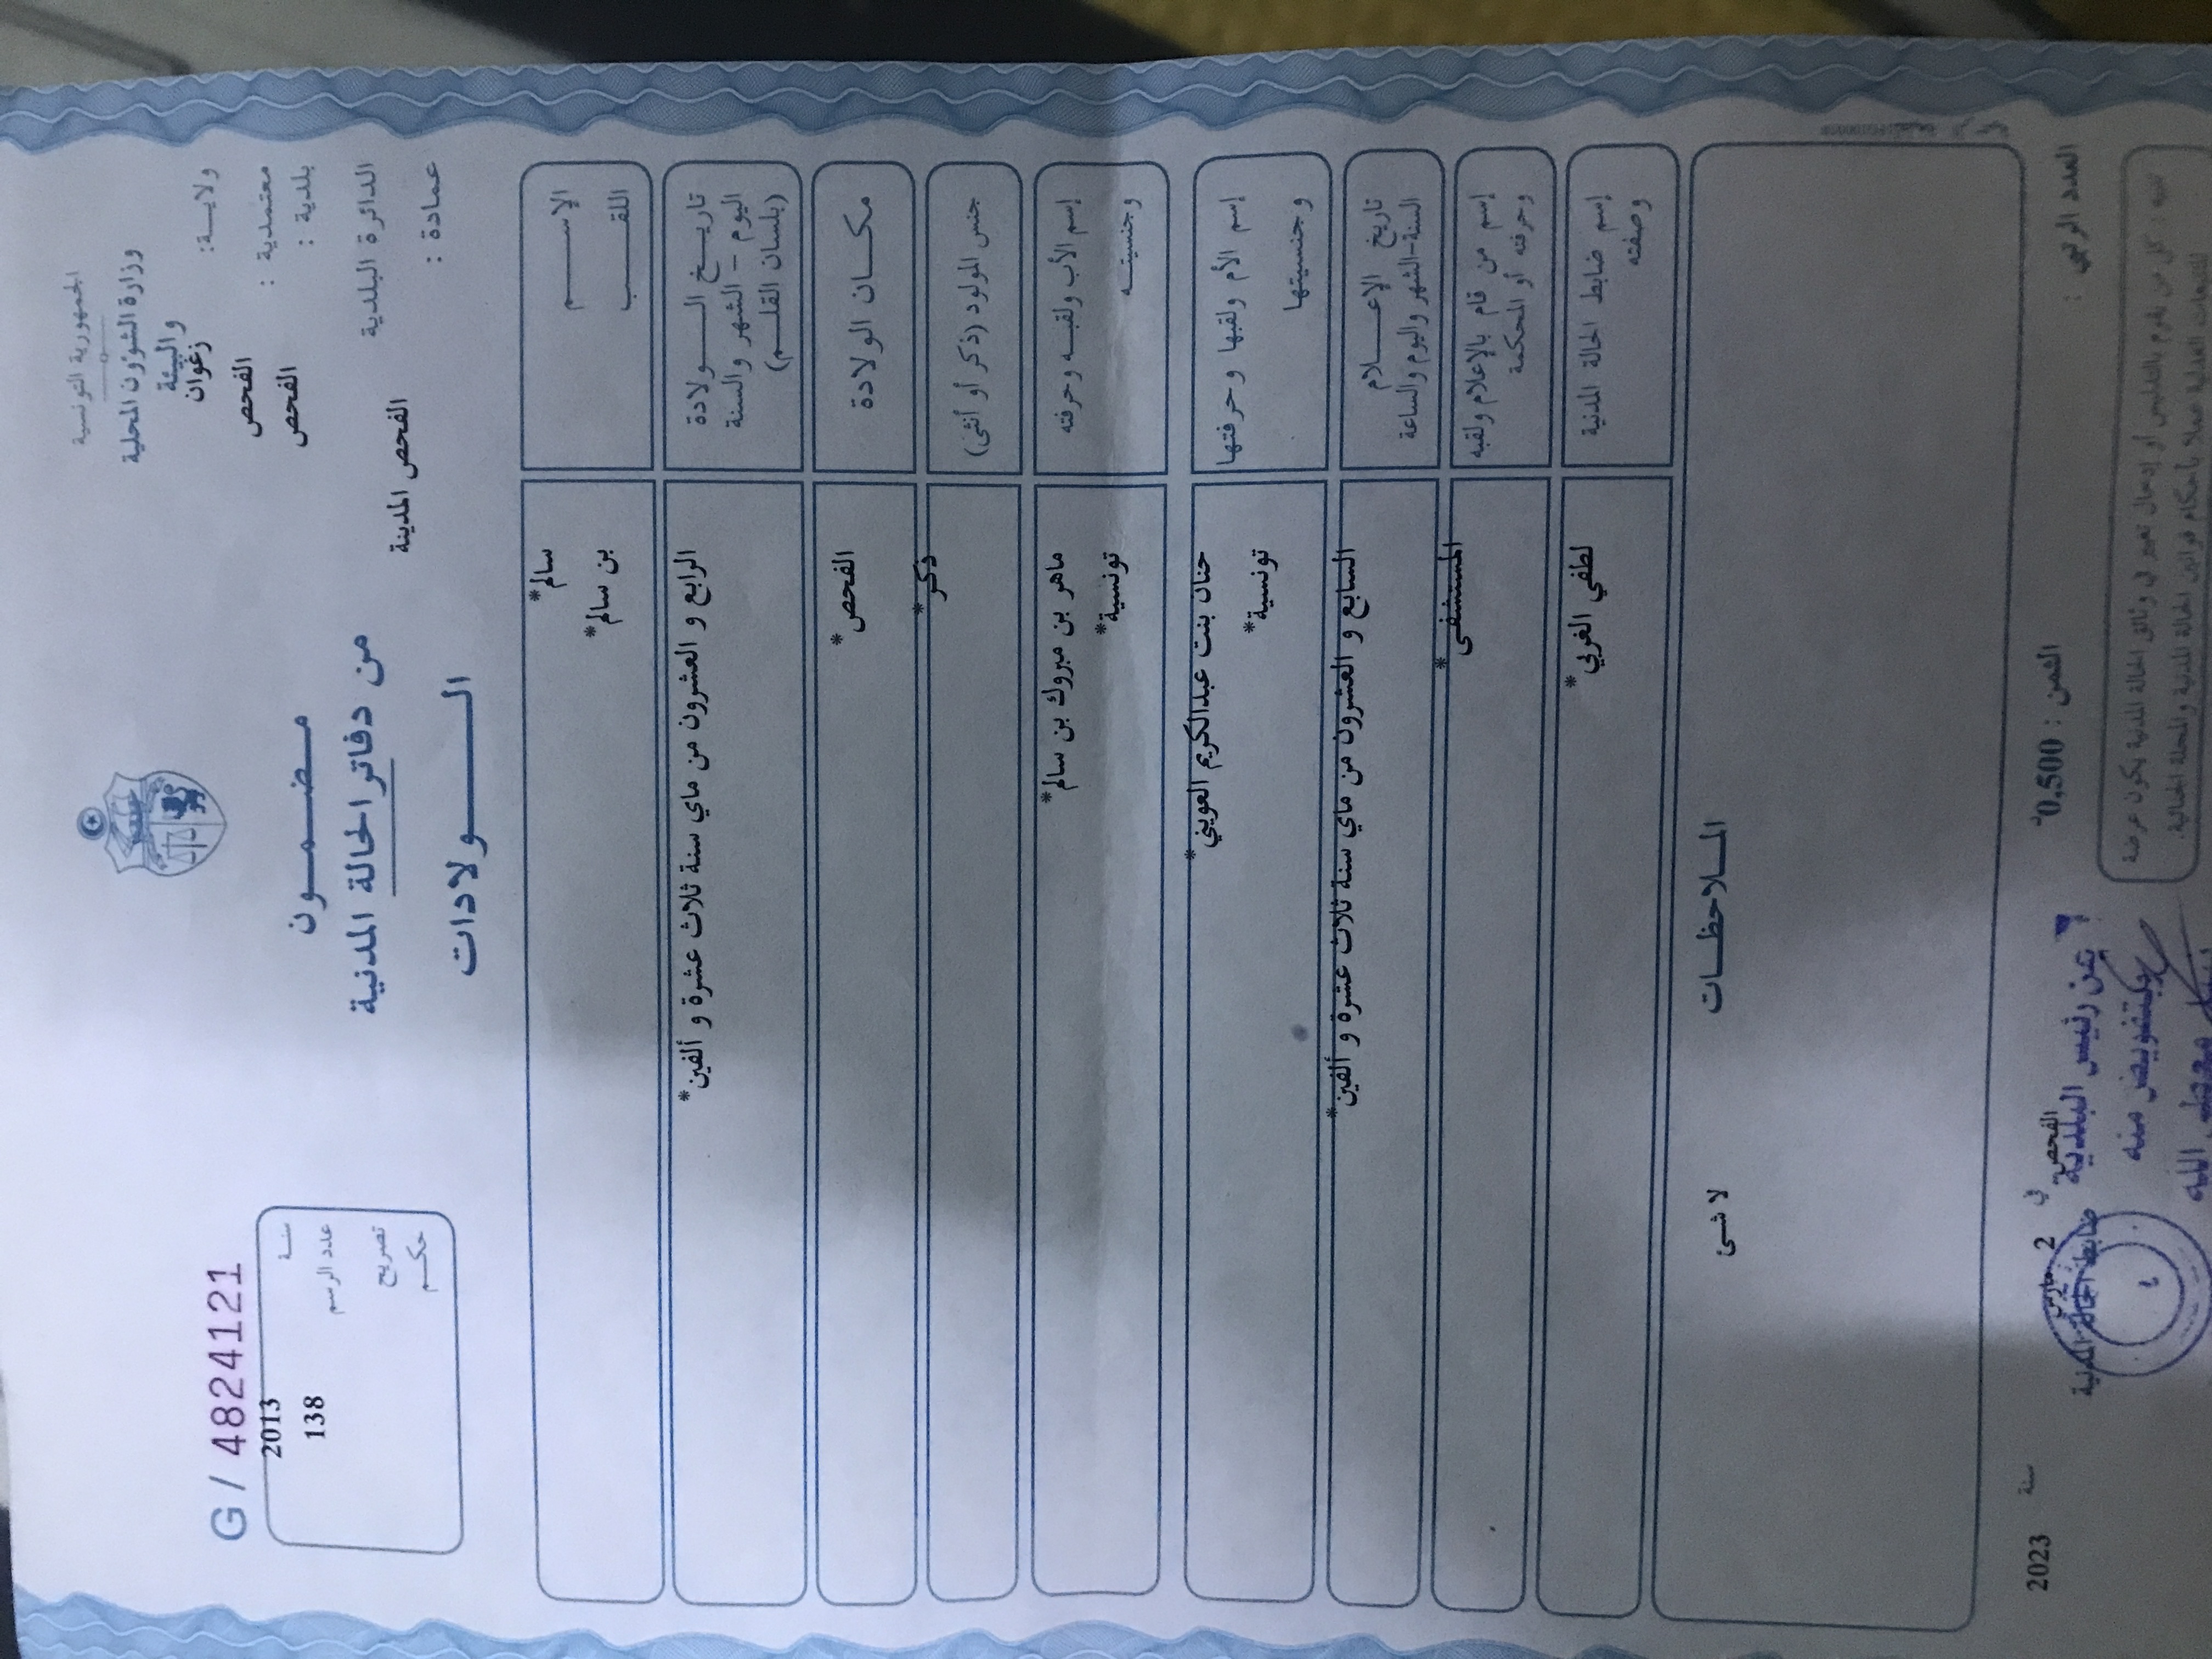 الجمهورية التونسية
وزارة الشؤون المحلية
والبيئة
ولايـــة: زغوان
معتمدية : الفحص
بلدية : الفحص
الدائرة البلدية
الفحص المدينة
عمادة :
مـضـمـــون
من دفاتر الحالة المدنية
الـــــولادات
G / 4824121
سنــة 2013
عدد الرسم 138
تصريح
حكــم
الإســــــم سالم*
اللقـــــب بن سالم*
تاريــخ الـــــولادة الرابع و العشرون من ماي سنة ثلاث عشرة و ألفين*
اليوم – الشهر والسنة
(بلسان القلـــم)
مكـــان الولادة الفحص*
جنس المولود (ذكر أو أنثى) ذكر*
إسم الأب ولقبــه وحرفته ماهر بن مبروك بن سالم*
وجنسيتــه تونسية*
إسم الأم ولقبها وحرفتها حنان بنت عبدالكريم العويني*
وجنسيتها تونسية*
تاريخ الإعــــلام السابع و العشرون من ماي سنة ثلاث عشرة و ألفين*
السنة-الشهر واليوم والساعة
إسم من قام بالإعلام ولقبه المستشفى*
وحرفته أو المحكمة
إسم ضابط الحالة المدنية لطفي الغربي*
وصفته
المــلاحظــات
لا شئ
العدد الرتبي :
الثمن : 0,500د
الفحص في 2 مارس سنة 2023
ضابط الحالة المدنية
عن رئيس البلدية
وبتفويض منه
تنبيه : كل من يقوم بالتدليس أو إدخال تغيير في وثائق الحالة المدنية يكون عرضة
للتتبعات العدلية عملا بأحكام قوانين الحالة المدنية والمجلة الجنائية.